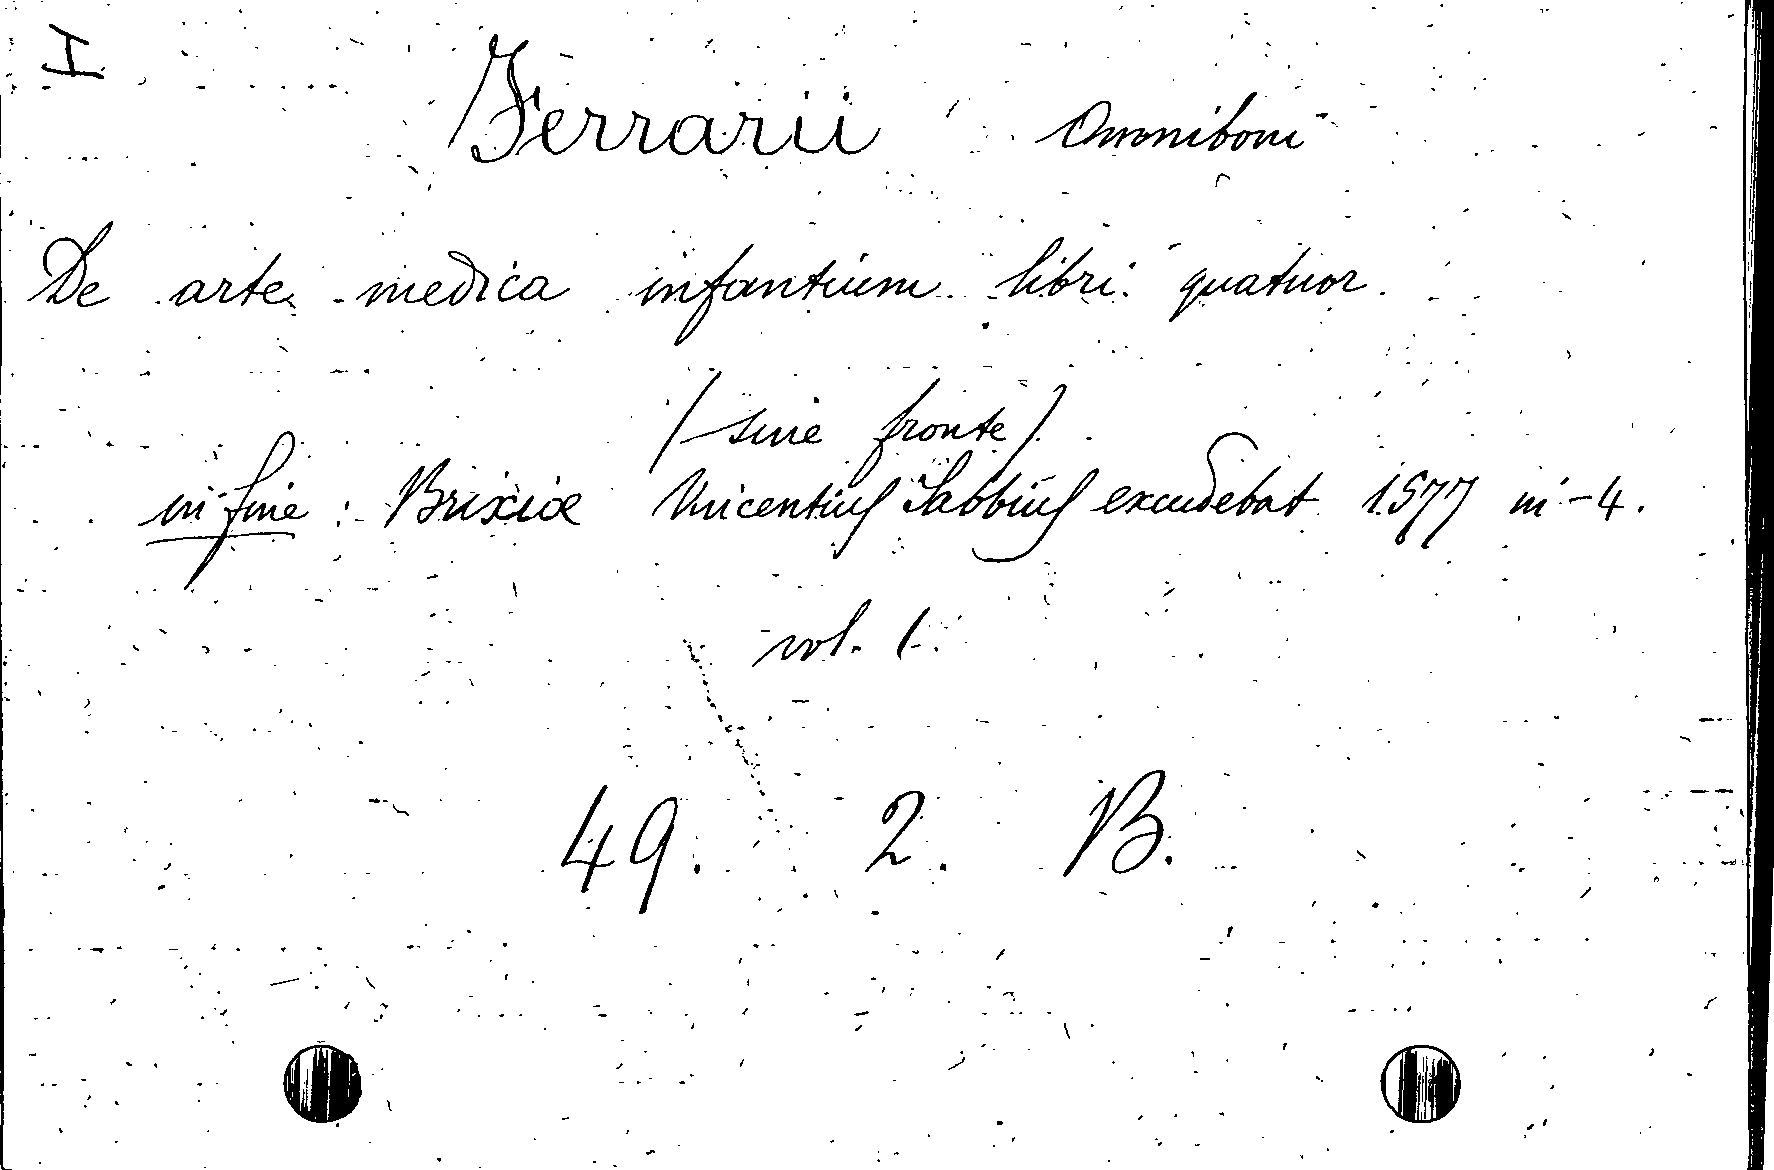 I
Ferrarii Omniboni
De arte medica infantium libri quatuor.
(sine fronte)
in fine : Brixiæ Vincentius Sabbius excudebat 1577 in-4.
vol. 1.
49. 2. B.